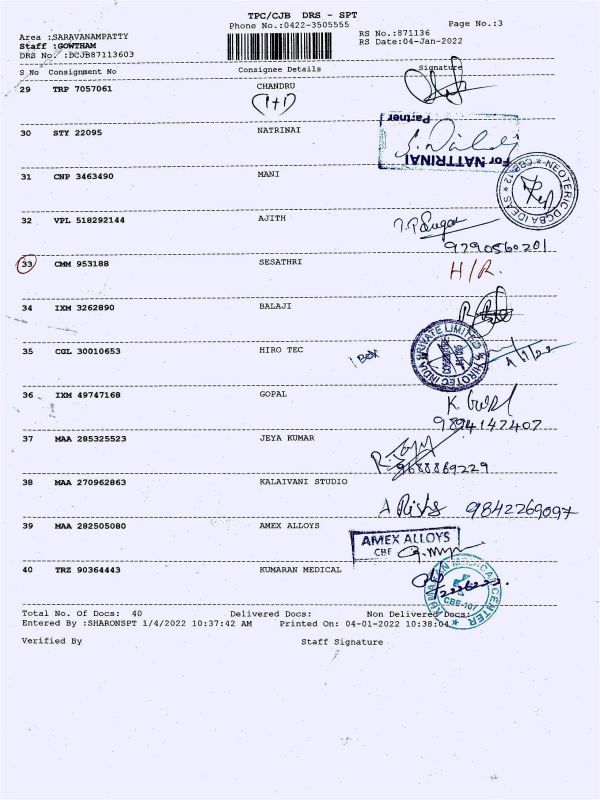 TPC/CJB DRS - SPT
Phone No.:0422-3505555
Page No.:3
Area :SARAVANAMPATTY
RS No.:871136
Staff :GOWTHAM
RS Date:04-Jan-2022
DRS No. :DCJB87113603
S_No Consignment No Consignee Details Signature
29 TRP 7057061 CHANDRU
(1+1)
30 STY 22095 NATRINAI
For NATTRINAI
Partner
31 CNP 3463490 MANI
NEOTERIC DCBA IDEAS
32 VPL 518292144 AJITH
9790560201
33 CMM 953188 SESATHRI
H/R.
34 IXM 3262890 BALAJI
35 CGL 30010653 HIRO TEC
1 Box
HIROTEC INDIA PRIVATE LIMITED
36 IXM 49747168 GOPAL
9894147407
37 MAA 285325523 JEYA KUMAR
9688869229
38 MAA 270962863 KALAIVANI STUDIO
9842269097
39 MAA 282505080 AMEX ALLOYS
AMEX ALLOYS
CBE
40 TRZ 90364443 KUMARAN MEDICAL
CENTER
CBE-107
Total No. Of Docs: 40 Delivered Docs: Non Delivered Docs:
Entered By :SHARONSPT 1/4/2022 10:37:42 AM Printed On: 04-01-2022 10:38:04
Verified By Staff Signature